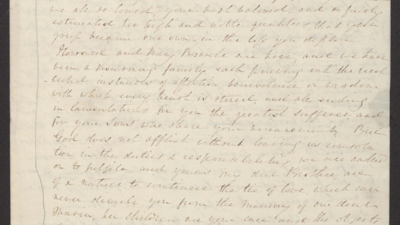 we all so loved, your most beloved, and so justly
estimated too high and noble qualities that your
grief became our own in the life you deplore
Florence and Mary are here, and we have
been a mourning family each pouring out the recol
lected instances of affection benevolence or wisdom
with which every heart is stored, and all ending
in lamentations for you the greatest sufferer and
for your Sons who share your But
God does not afflict without leaving us consola
tion in the duties & responsibilities, we are called
on to fulfil and yours my dear Brother, are
of a nature to the tie of love which can
never you from the memory of our dear
Maria, her children are your care and the objects